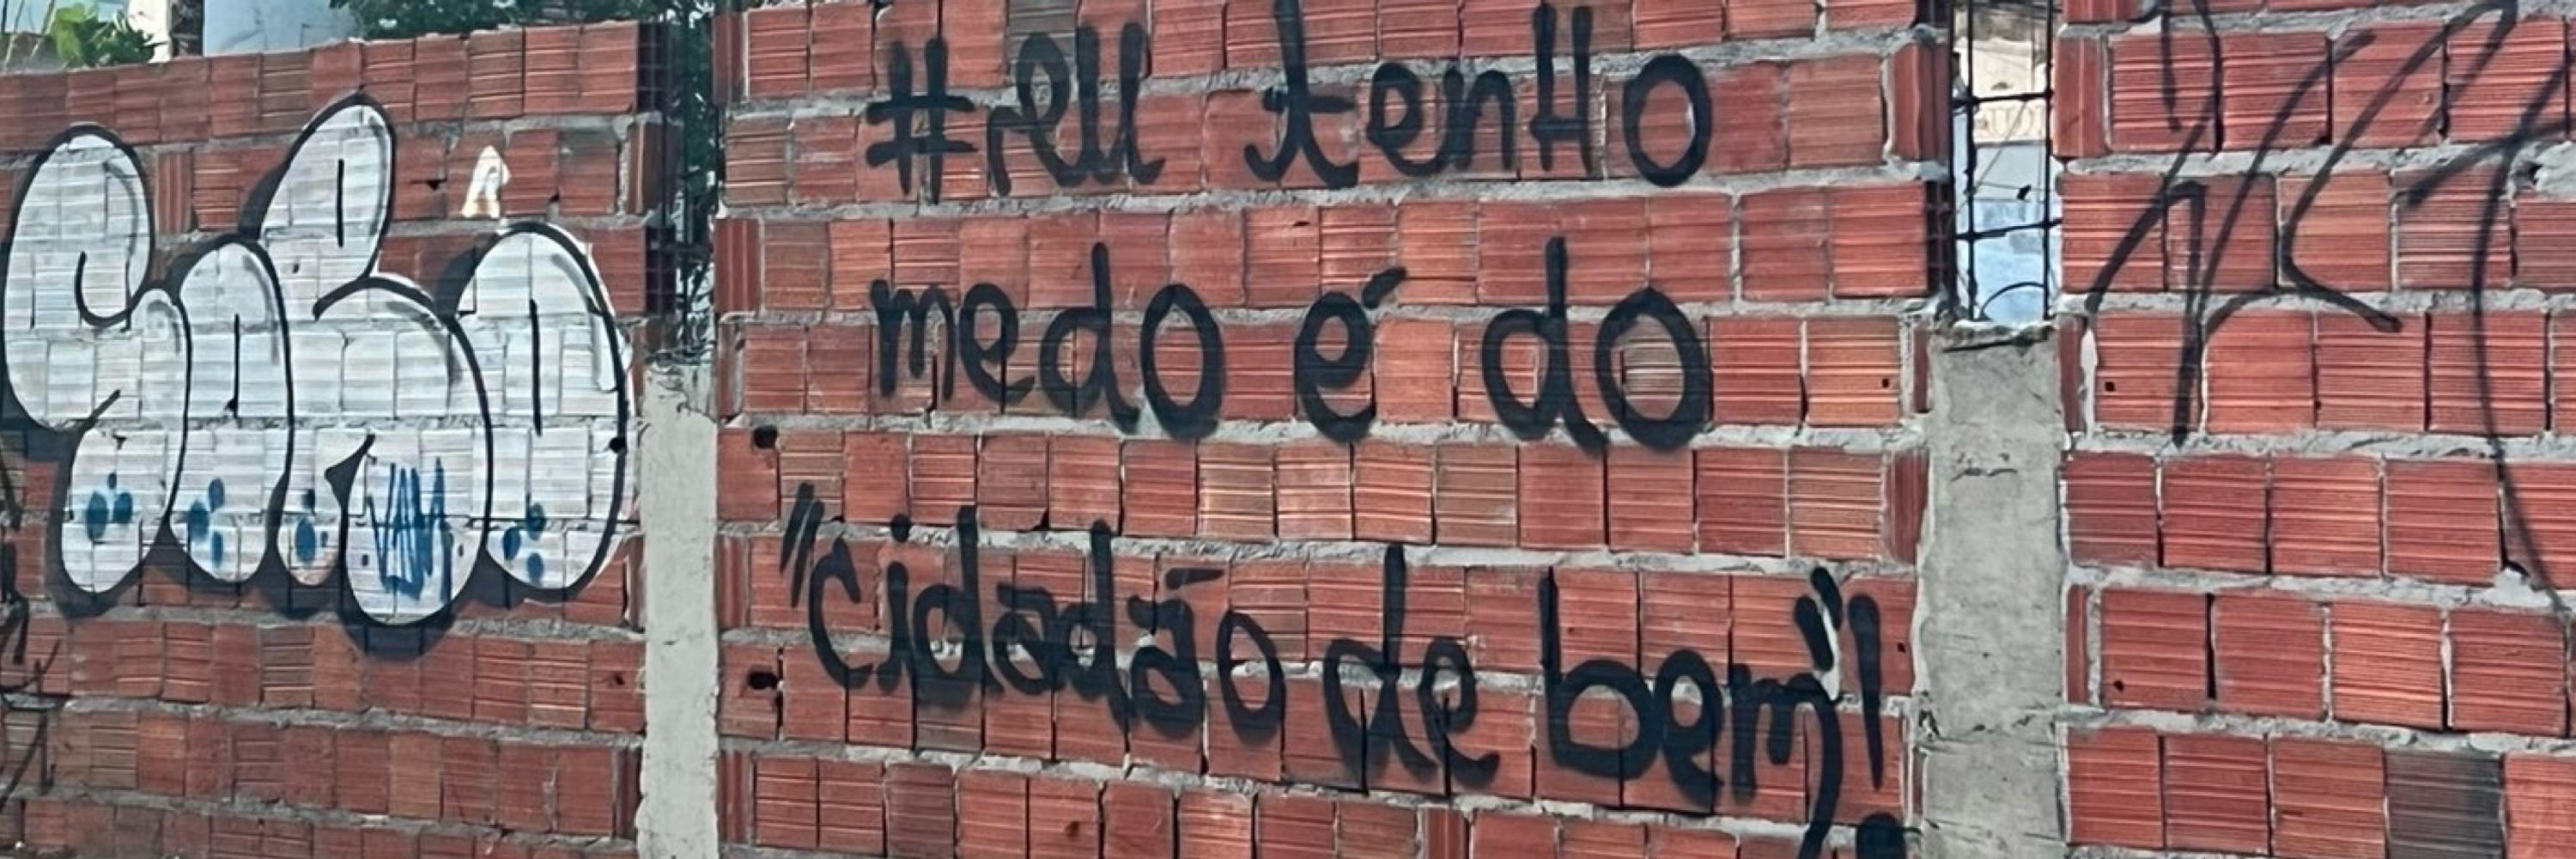 #eu tenHo
medo é do
"cidadão de bem"!